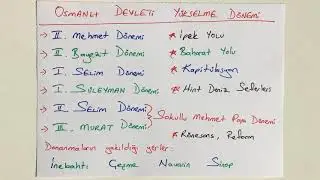 OSMANLI DEVLETİ YÜKSELME DÖNEMİ
→ II. Mehmet Dönemi * İpek Yolu
→ II. Bayezit Dönemi * Baharat Yolu
→ I. Selim Dönemi * Kapitülasyon
→ I. SÜLEYMAN Dönemi * Hint Deniz Seferleri
→ II. SELİM Dönemi
Sokullu Mehmet Paşa Dönemi
→ III. MURAT Dönemi * Rönesans, Reform
Donanmaların yakıldığı yerler:
İnebahtı Çeşme Navarin Sinop